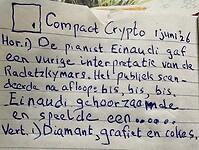 Compact Crypto 1 juni '26
Hor. 1) De pianist Einaudi gaf
een vurige interpretatie van de
Radetzkymars. Het publiek scan-
deerde na afloop: bis, bis, bis.
Einaudi gehoorzaamde
en speelde een......
Vert. 1) Diamant, grafiet en cokes.